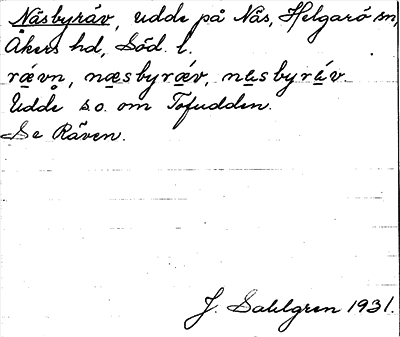 Näsbyräv, udde på Näs, Helgarö sn,
Åkers hd, Söd. l.
rævn, næsbyræv, næsbyræv.
Udde so. om Tofudden.
Se Räven.
J. Sahlgren 1931.